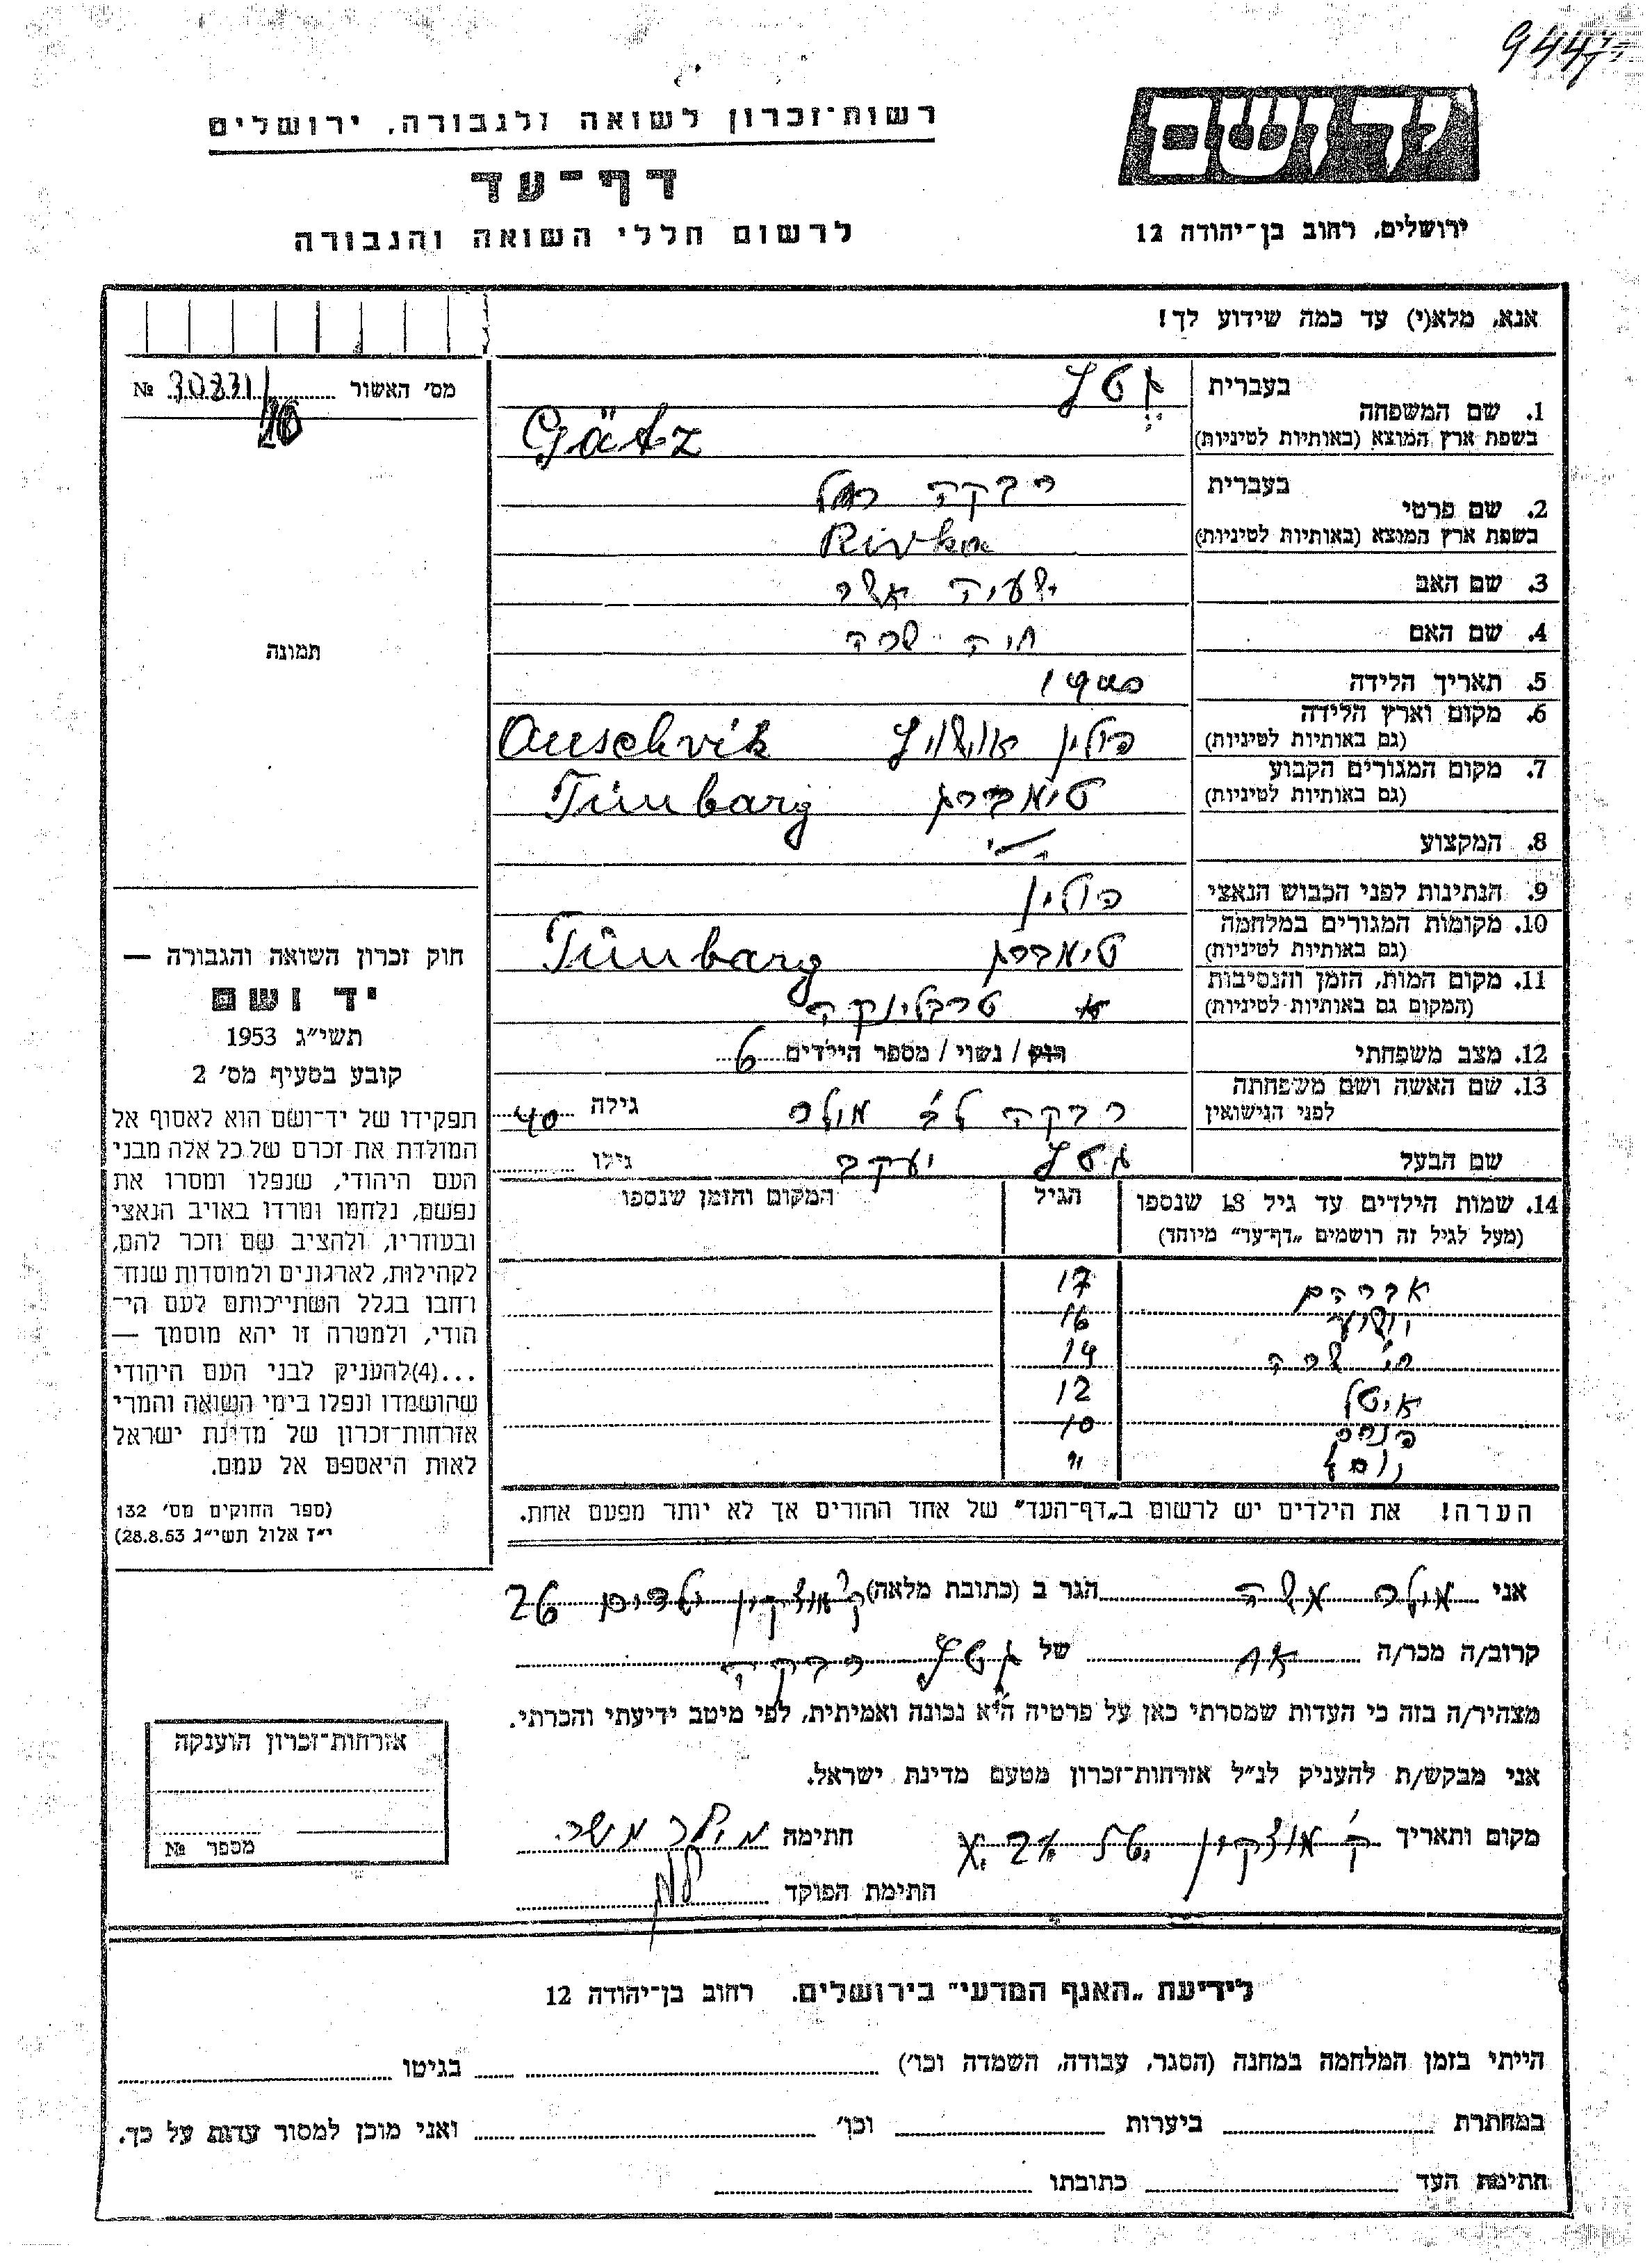 יד ושם
ירושלים, רחוב בן-יהודה 12
רשות-זכרון לשואה ולגבורה, ירושלים
דף-עד
לרשום חללי השואה והגבורה
אנא, מלא(י) עד כמה שידוע לך!
מס' האשור № 30831/
תמונה
חוק זכרון השואה והגבורה —
יד ושם
תשי״ג 1953
קובע בסעיף מס' 2
תפקידו של יד-ושם הוא לאסוף אל
המולדת את זכרם של כל אלה מבני
העם היהודי, שנפלו ומסרו את
נפשם, נלחמו ומרדו באויב הנאצי
ובעוזריו, ולהציב שם וזכר להם,
לקהילות, לארגונים ולמוסדות שנח-
רבו בגלל השתייכותם לעם הי-
הודי, ולמטרה זו יהא מוסמך —
...(4) להעניק לבני העם היהודי
שהושמדו ונפלו בימי השואה והמרי
אזרחות-זכרון של מדינת ישראל
לאות היאספם אל עמם.
(ספר החוקים מס' 132
י״ז אלול תשי״ג 28.8.53)
1. שם המשפחה בעברית גטץ
בשפת ארץ המוצא (באותיות לטיניות) Gätz
2. שם פרטי בעברית רבקה
בשפת ארץ המוצא (באותיות לטיניות) Rivka
3. שם האב ישעיה אשר
4. שם האם חיה שרה
5. תאריך הלידה 1900
6. מקום וארץ הלידה
(גם באותיות לטיניות) פולין אושויץ Auschvik
7. מקום המגורים הקבוע
(גם באותיות לטיניות) טימברג Timbarg
8. המקצוע
9. הנתינות לפני הכבוש הנאצי פולין
10. מקומות המגורים במלחמה
(גם באותיות לטיניות) טימברג Timbarg
11. מקום המות, הזמן והנסיבות
(המקום גם באותיות לטיניות) טרבלינקה
12. מצב משפחתי רווק / נשוי / מספר הילדים 6
13. שם האשה ושם משפחתה
לפני הנישואין רבקה לב' מולר גילה 40
שם הבעל גטץ יעקב גילו
14. שמות הילדים עד גיל 18 שנספו הגיל המקום והזמן שנספו
(מעל לגיל זה רושמים „דף-עד״ מיוחד)
אברהם 17
יהושע 16
חי' שרה 14
איטל 12
פנחס 10
הערה! את הילדים יש לרשום ב„דף-העד״ של אחד ההורים אך לא יותר מפעם אחת.
אני מולר משה הגר ב (כתובת מלאה) ק' מוצקין 26
קרוב/ה מכר/ה אח של גטץ רבקה
מצהיר/ה בזה כי העדות שמסרתי כאן על פרטיה היא נכונה ואמיתית, לפי מיטב ידיעתי והכרתי.
אני מבקש/ת להעניק לנ״ל אזרחות-זכרון מטעם מדינת ישראל.
מקום ותאריך ק' מוצקין חתימה מילר משה
חתימת הפוקד
אזרחות-זכרון הוענקה
מספר №
לידיעת „האגף המדעי״ בירושלים. רחוב בן-יהודה 12
הייתי בזמן המלחמה במחנה (הסגר, עבודה, השמדה וכו') בגיטו
במחתרת ביערות וכו' ואני מוכן למסור עדות על כך.
חתימת העד כתובתו